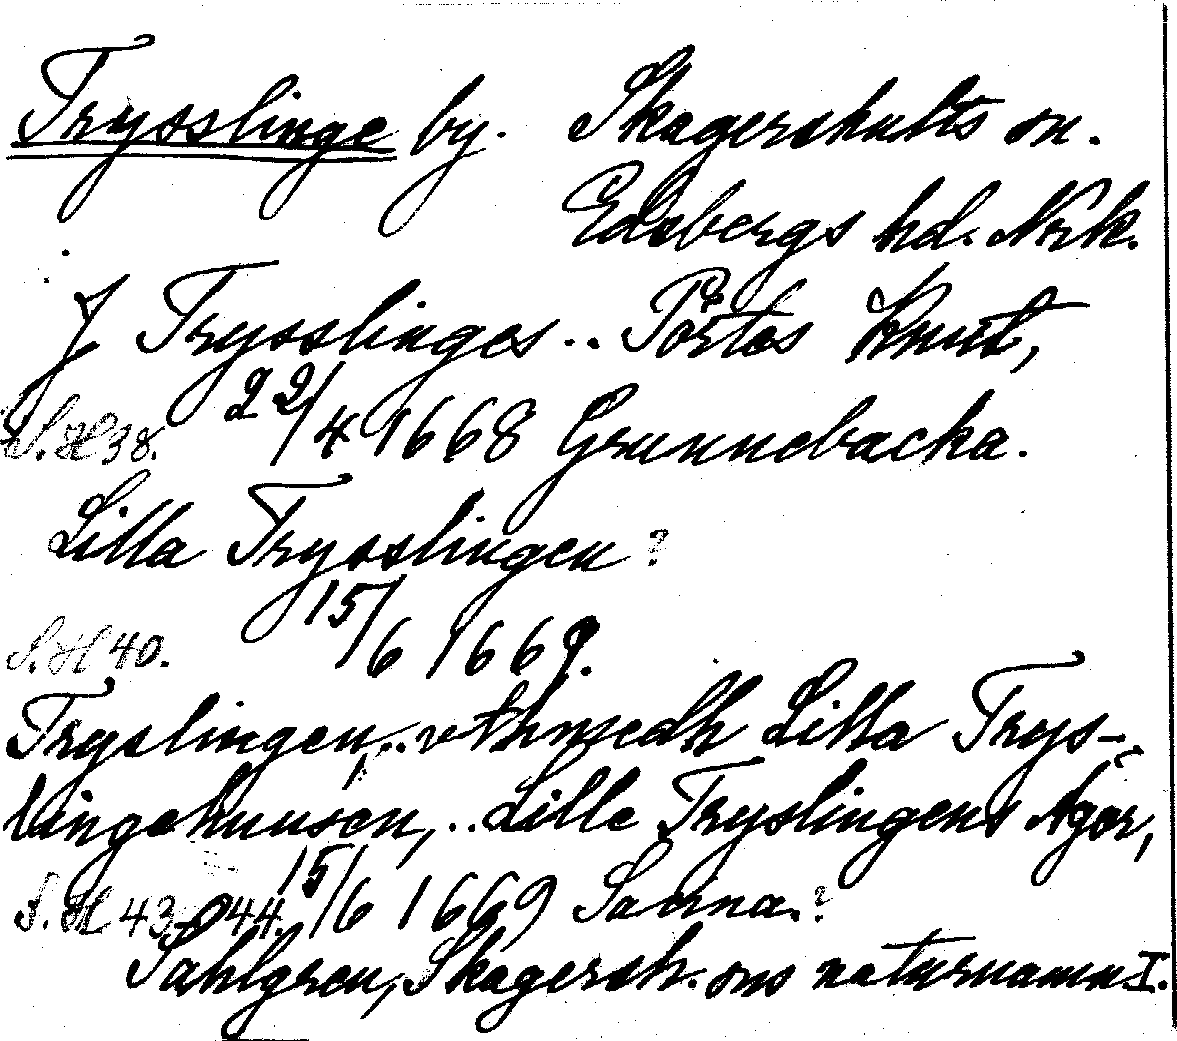 Trysslinge by. Skagershults sn.
Edsbergs hd. Nrk.
J Trysslinges .. Pörtes Knut,
S. H 38. 22/4 1668 Grunnebacka.
Lilla Trysslingen ?
S. H 40. 15/6 1669.
Tryslingen, .. uthmedh Lilla Trys-
lingehuusen, .. Lille Tryslingens Ägor,
S. H 43-044. 15/6 1669 Saxna. ?
Sahlgren, Skagersh. sns naturnamn I.